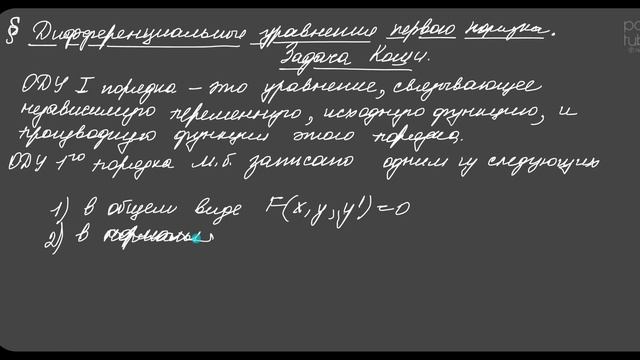 § Дифференциальные уравнения первого порядка.
Задача Коши.
ОДУ I порядка – это уравнение, связывающее
независимую переменную, исходную функцию, и
производную функции этого порядка.
ОДУ 1го порядка м.б записано одним из следующих
1) в общем виде F(x, y, y') = 0
2) в